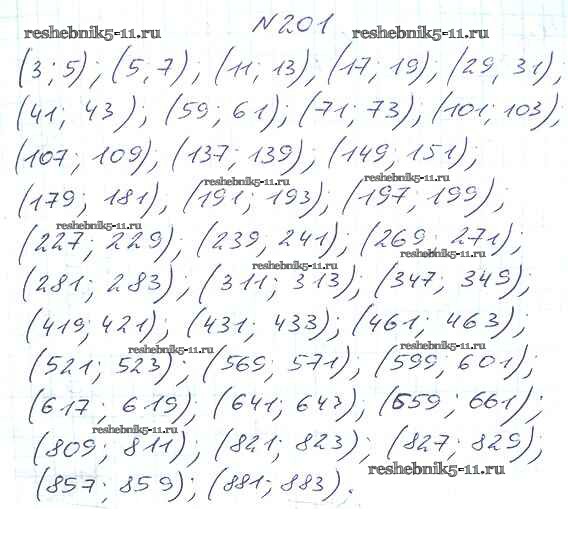 reshebnik5-11.ru N201 reshebnik5-11.ru
(3; 5); (5, 7); (11, 13); (17, 19), (29, 31),
(41; 43); (59; 61); (71; 73); (101; 103),
(107; 109); (137; 139); (149; 151);
reshebnik5-11.ru reshebnik5-11.ru
(179; 181), (191; 193); (197 199);
reshebnik5-11.ru
(227; 229); (239, 241); (269; 271);
reshebnik5-11.ru reshebnik5-11.ru
(281; 283); (311; 313); (347; 349);
(419; 421); (431; 433); (461; 463);
reshebnik5-11.ru reshebnik5-11.ru
(521; 523); (569; 571); (599; 601);
(617; 619); (641; 643); (659; 661);
reshebnik5-11.ru
(809; 811); (821; 823); (827; 829),
reshebnik5-11.ru
(857; 859); (881; 883).